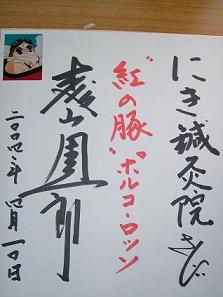 にき鍼灸院
“紅の豚”ポルコ・ロッソ
森山周一郎
二〇〇四年 四月一〇日